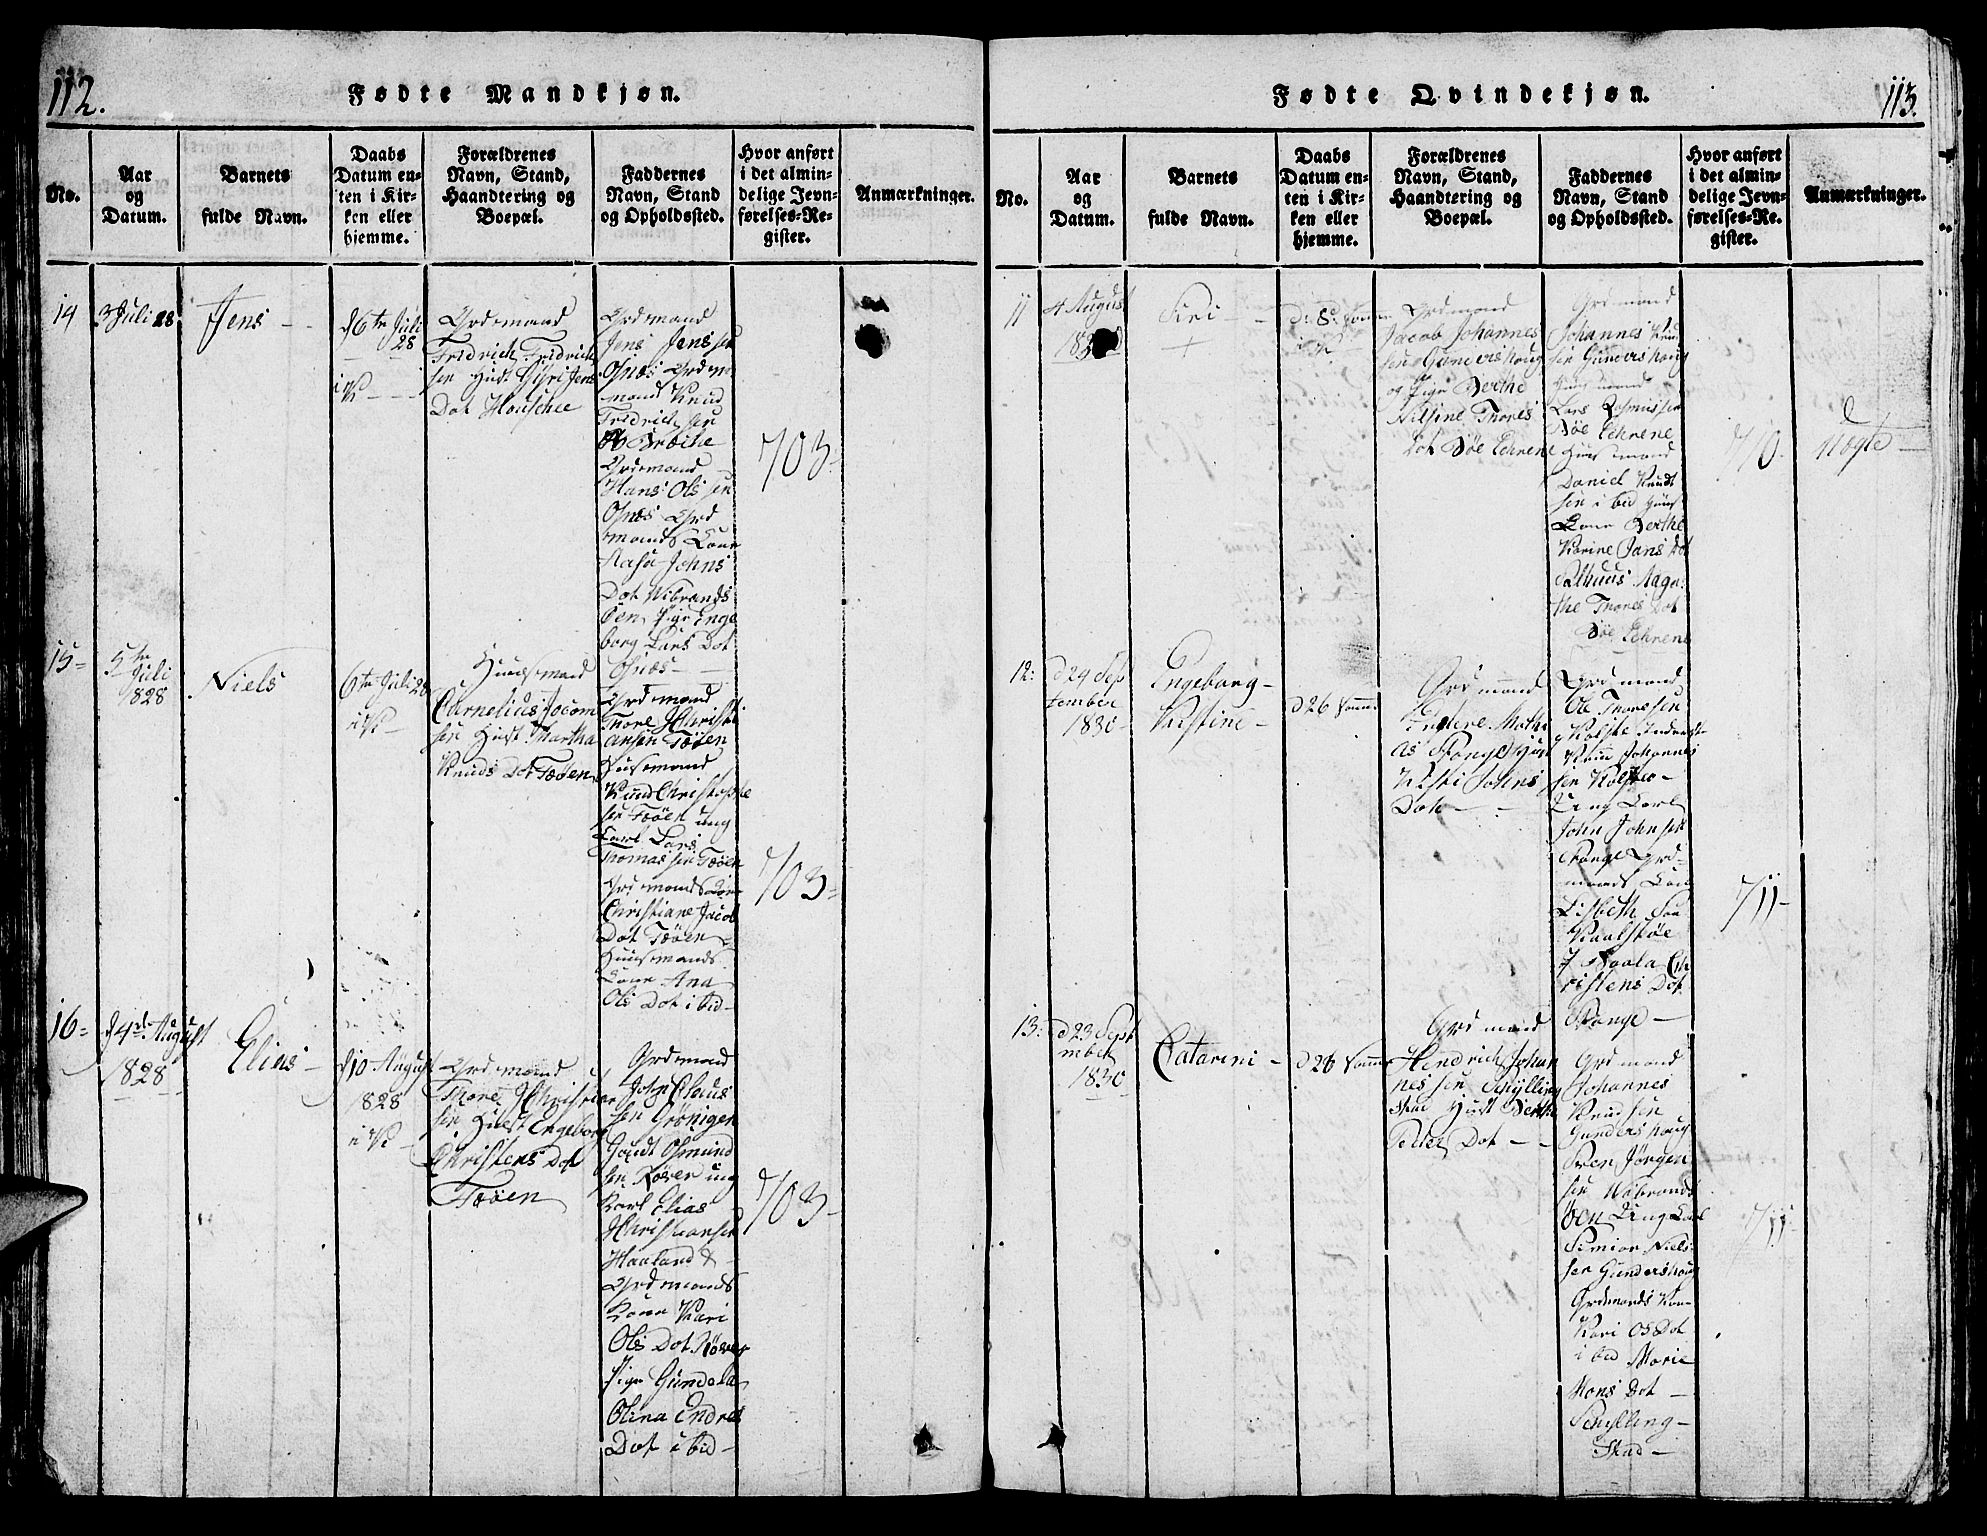 112.
Fødte Mandkjøn.
No.
Aar
og
Datum.
Barnets
fulde Navn.
Daabs
Datum en-
ten i Kir-
ken eller
hjemme.
Forældrenes
Navn, Stand,
Haandtering og
Boepæl.
Faddernes
Navn, Stand
og Opholdssted.
Hvor anført
i det almin-
delige Jevn-
førelses-Re-
gister.
Anmærkninger.
14
3 Juli 28
Jens
d 6te Juli
28
i K
Grdmand
Fridrich Fridrich
sen Hust Giri Jens
Dot
Grdmand
Jens Jenssen
Osnæs Grdm
mand Knud
Fridrichsen
Bræche
Grdmand
Hans Olssen
Osnæs Grd
mands Kone
Aasa Johns
Dot Wibrands
öen Pige Enge
borg Lars Dot
Osnæs
703
15
5te
Juli
1828
Niels
6te Juli 28
i K
Huusmand
Cornelius Jocom
sen Hust Martha
Knuds Dot Tøøen
Grdmand
Thore Christi
ansen Tøøen
Husmand
Knud Christophe
sen Tøøen ung
Karl Lars
Thomassen Tøøen
Grdmands Kone
Christiane Jacob
Dot Tøøen
Huusmands
Kone Ana
Ols Dot ibid
703
16
d 4de August
1828
Elias
d 10 August
1828
i K
Grdmand
Thore Christian
sen Hust Engeborg
Christens Dot
Tøøen
Grdmand
John Claus
sen Grønigen
Gaudt Osmund
sen Røver ung
Karl Elias
Christiansen
Haaland &
Grdmands
Kone Kari
Ols Dot Røver
Pige Gundela
Olina Endres
Dot ibid
703
113.
Fødte Qvindekjøn.
No.
Aar
og
Datum.
Barnets
fulde Navn.
Daabs
Datum en-
ten i Kir-
ken eller
hjemme.
Forældrenes
Navn, Stand,
Haandtering og
Boepæl.
Faddernes
Navn, Stand
og Opholdssted.
Hvor anført
i det almin-
delige Jevn-
førelses-Re-
gister.
Anmærkninger.
11
4 August
Siri
Grdmand
Jacob Johannes
sen Gundershoug
og Pige Berthe
Nilsine Thores
Dot Bøe Echrene
Grdmand
Johannes Knud
sen Gundershoug
Huusmand
Lars Rasmussen
Bøe Echrene
Huusmand
Daniel Knudt
sen ibid Huus
Kone Berthe
Karine Jans Dot
Salhuus Magn
the Thores Dot
Bøe Echrene
710
Uægte
12:
d 24 Sep
tember
1830
Engeborg
Kirstine
d 26 Samme
Grdmand
Endere Mathi
as Stange Hust
Kirsti Johns
Dot
Grdmand
Ole Thorssen
Johannes
sen Kolstøe
Ung Karl
John Johnsen
Stange Grd
mands Kone
Lisbeth
Kaalstøe
P Maala Ch
ristens Dot
Stange
711
13:
d 23 Sept
mber
1830
Catarini
d 26 Samme
Grdmand
Hendrich Johan
nessen Schylling
stad Hust Berthe
Peder Dot
Grdmand
Johannes
Knudsen
Gundershoug
Sven Jørgen
sen Wibrands
øen Ung Karl
Simion Niels
sen Gundershoug
Grdmands Kone
Kari Os Dot
ibid Marie
Mons Dot
Schylling
stad
711